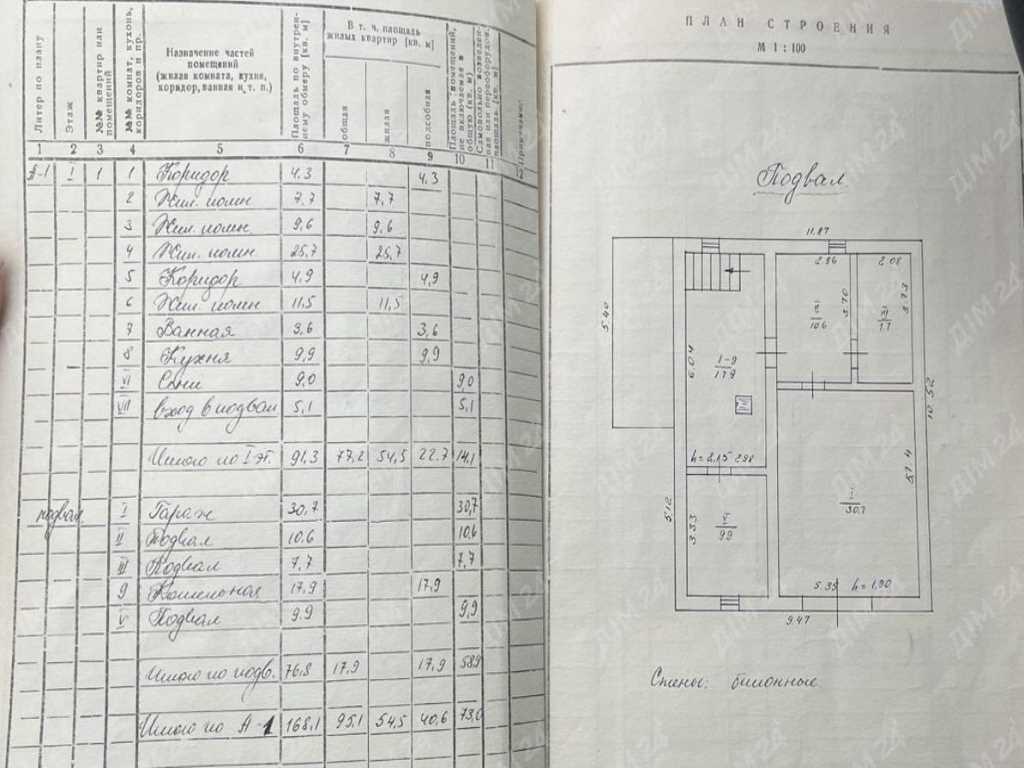 Литер по плану
Этаж
№№ квартир или помещений
№№ комнат, кухонь, коридоров и пр.
Назначение частей помещений (жилая комната, кухня, коридор, ванная и т. п.)
Площадь по внутреннему обмеру [кв. м]
В т. ч. площадь жилых квартир [кв. м]
общая
жилая
подсобная
Площадь помещений, не включаемая в общую [кв. м]
Самовольно возведенная или переоборудов. площадь [кв. м]
Примечание
1 2 3 4 5 6 7 8 9 10 11 12
А-1 I 1 1 Коридор 4.3 4.3
2 Жил. комн 7,7 7,7
3 Жил. комн 9,6 9,6
4 Жил. комн 25,7 25,7
5 Коридор 4,9 4,9
6 Жил. комн 11,5 11,5
7 Ванная 3,6 3,6
8 Кухня 9,9 9,9
VI Сени 9,0 9,0
VII вход в подвал 5,1 5,1
Итого по I эт. 91,3 77,2 54,5 22.7 14,1
подвал I Гараж 30,7 30,7
II Подвал 10.6 10,6
III Подвал 7,7 7,7
9 Котельная 17,9 17,9
V Подвал 9.9 9,9
Итого по подв. 76.8 17,9 17,9 58,9
Итого по А-1 168,1 95,1 54,5 40,6 73,0
ПЛАН СТРОЕНИЯ
М 1 : 100
Подвал
11.87
2.86
2.08
5.40
3.70
3.73
II
10.6
III
7.7
6.04
1-9
17.9
10.52
h=2,15
2.98
5.12
3.33
V
9.9
I
30.7
5.39
h=1,90
9.47
Стены: бетонные
ДІМ 24